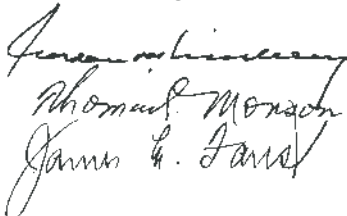 Gordon B. Hinckley
Thomas S. Monson
James E. Faust